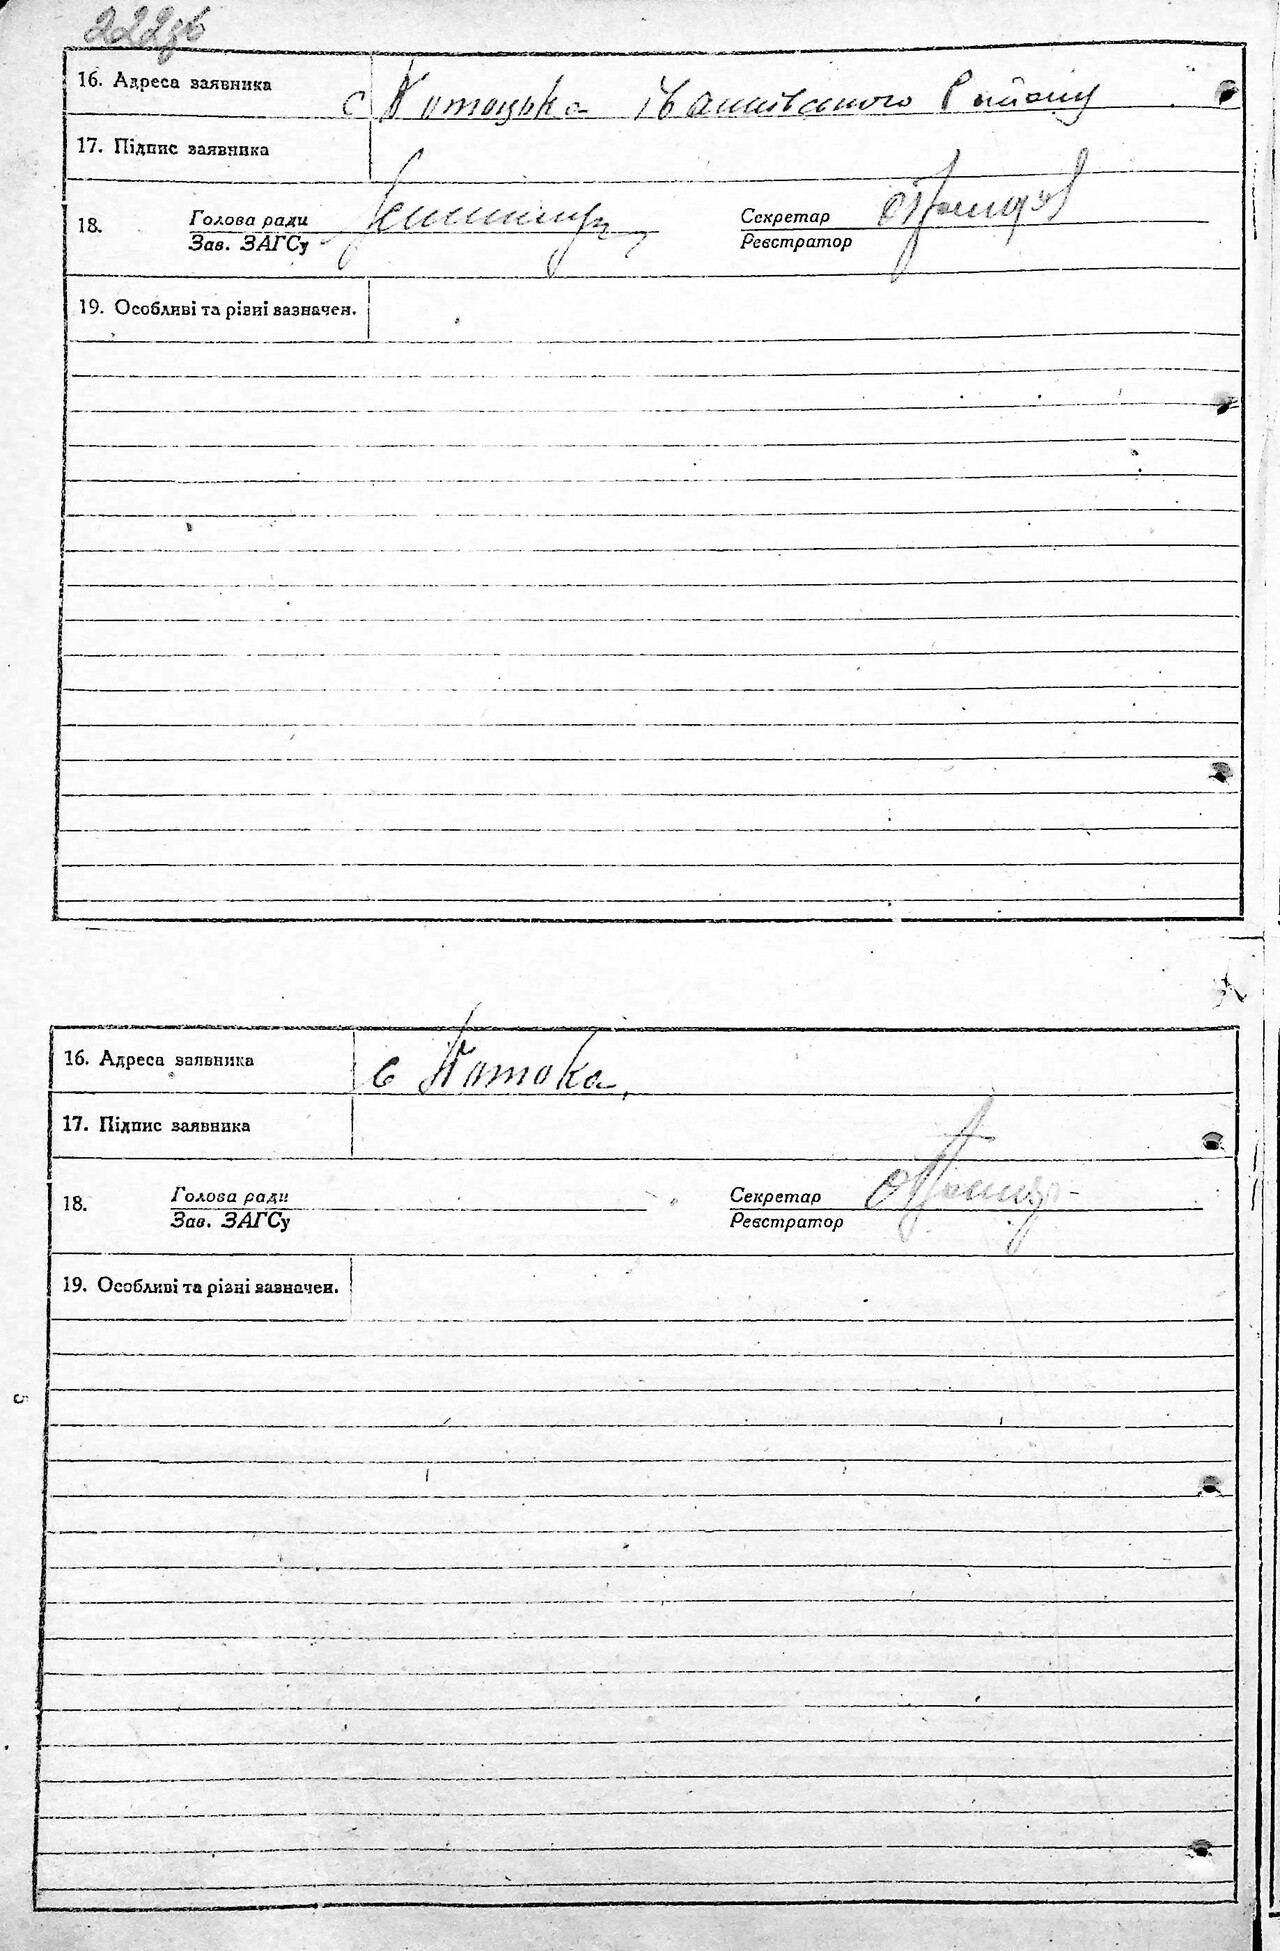 222зв
16. Адреса заявника
с Потоцька Іванківского Району
17. Підпис заявника
18. Голова ради Секретар
Зав. ЗАГСу Реєстратор
19. Особливі та різні зазначен.
16. Адреса заявника
с Потока
17. Підпис заявника
18. Голова ради Секретар
Зав. ЗАГСу Реєстратор
19. Особливі та різні зазначен.